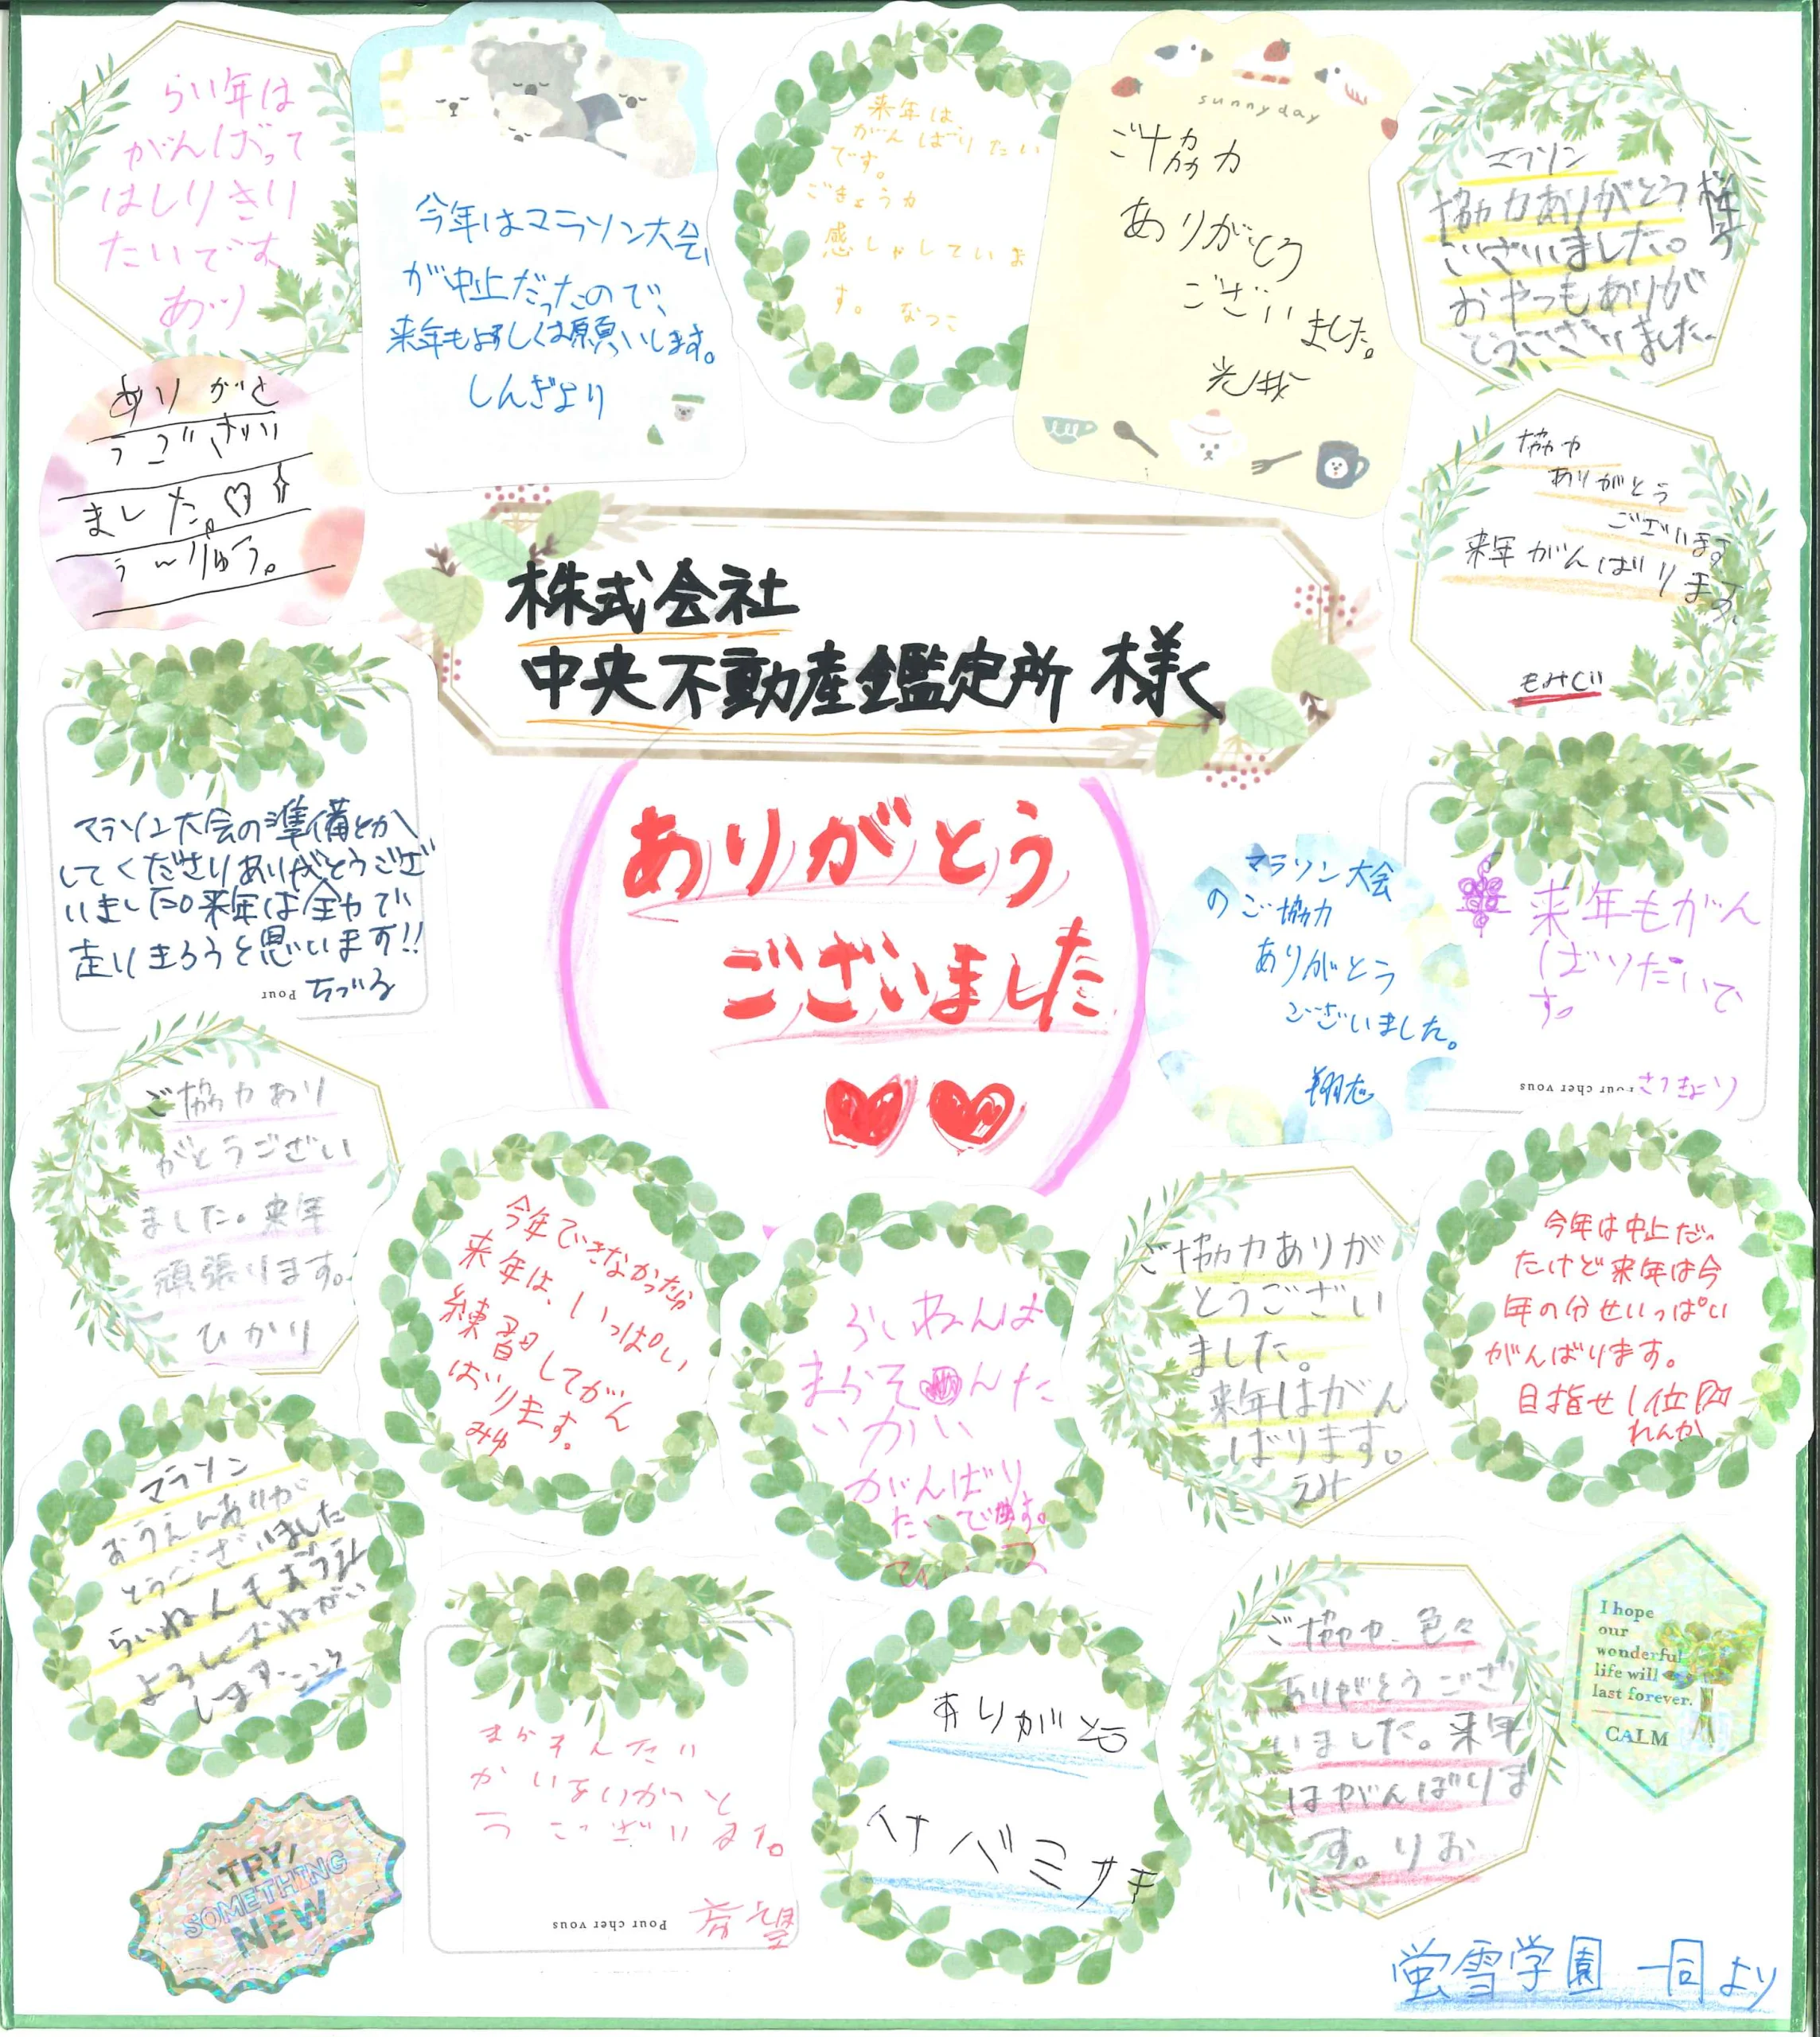 らい年は
がんばって
はしりきり
たいです
あツ
今年はマラソン大会
が中止だったので、
来年も宜しくお願いします。
しんぎより
来年は
がんばりたい
です。
ごきょうカ
感しゃしていま
す。 なつこ
sunnyday
ご協力
ありがとう
ございました。
マラソン
協力ありがとう
ございました。
おやつもありが
とうございました。
ありがと
うござい
ました。♡
うーりゅう。
協力
ありがとう
ございます
来年がんばります。
もみじ
株式会社
中央不動産鑑定所 様
ありがとう
ございました
マラソン大会の準備とか
してくださりありがとうござ
いました。来年は全力で
走りきろうと思います!!
Pour ちづる
マラソン大会
のご協力
ありがとう
ございました。
翔志
来年もがん
ばりたいで
す。
Pour cher vous さつきより
ご協力あり
がとうござい
ました。来年
頑張ります。
ひかり
今年できなかったから
来年は、いっぱい
練習してがん
ばります。
みゆ
らいねんは
まらそんた
いかい
がんばり
たいです。
ご協力ありが
とうござい
ました。
来年はがん
ばります。
今年は中止だっ
たけど来年は今
年の分せいっぱい
がんばります。
目指せ1位
れんか
マラソン
おうえんありが
とうございました
らいねんもおうえん
よろしくおねがい
します。こころ
まらそんたい
かいありがと
うございます。
Pour cher vous 希望
ありがとう
ハナバミサキ
ご協力、色々
ありがとうござ
いました。来年
はがんばりま
す。りお
I hope
our
wonderful
life will
last forever.
CALM
TRY
SOMETHING
NEW
蛍雪学園 一同より